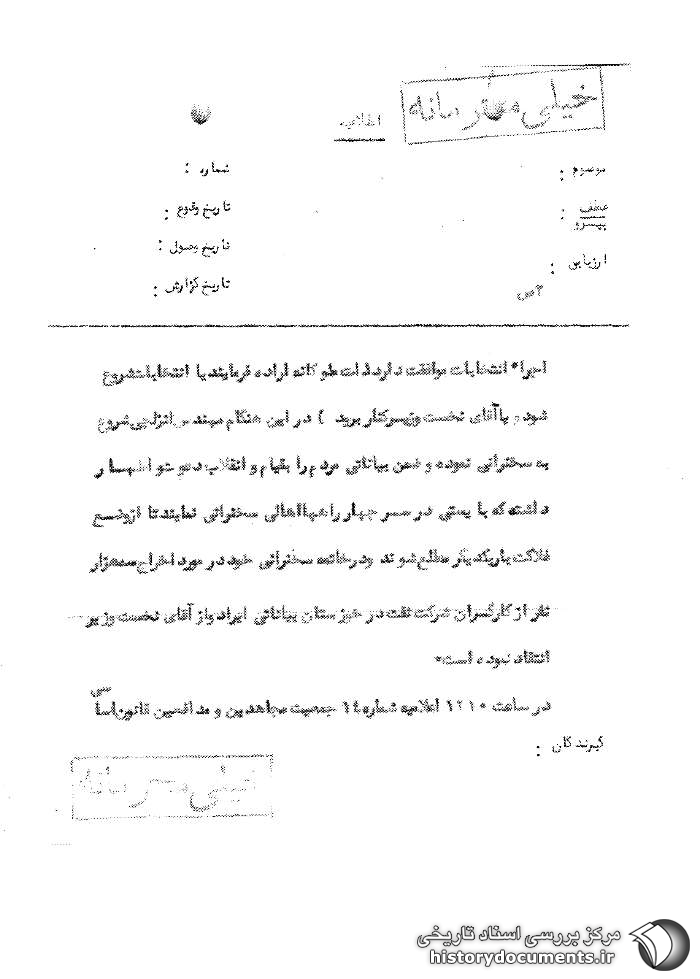 خیلی محرمانه
اطلاعیه
موضوع :
شماره :
عطف :
پیرو
تاریخ وقوع :
تاریخ وصول :
ارزیابی :
تاریخ گزارش :
۲ص
اجراء انتخابات موافقت دارد ذات ملوکانه اراده فرمایند یا انتخابات شروع
شود و یا آقای نخست وزیر کنار برود ) در این هنگام مهندس انزلچی شروع
به سخنرانی نموده و ضمن بیاناتی مردم را بقیام و انقلاب دعوت و اظهار
داشته که بایستی در سر چهار راهها اهالی سخنرانی نمایند تا از وضع
فلاکت بار یکدیگر مطلع شوند و در خاتمه سخنرانی خود در مورد اخراج سه هزار
نفر از کارگران شرکت نفت در خوزستان بیاناتی ایراد و از آقای نخست وزیر
انتقاد نموده است.
در ساعت ۱۲۱۰ اعلامیه شماره ۱۴ جمعیت مجاهدین و مدافعین قانون اساسی
گیرندگان :
خیلی محرمانه
مرکز بررسی اسناد تاریخی
historydocuments.ir